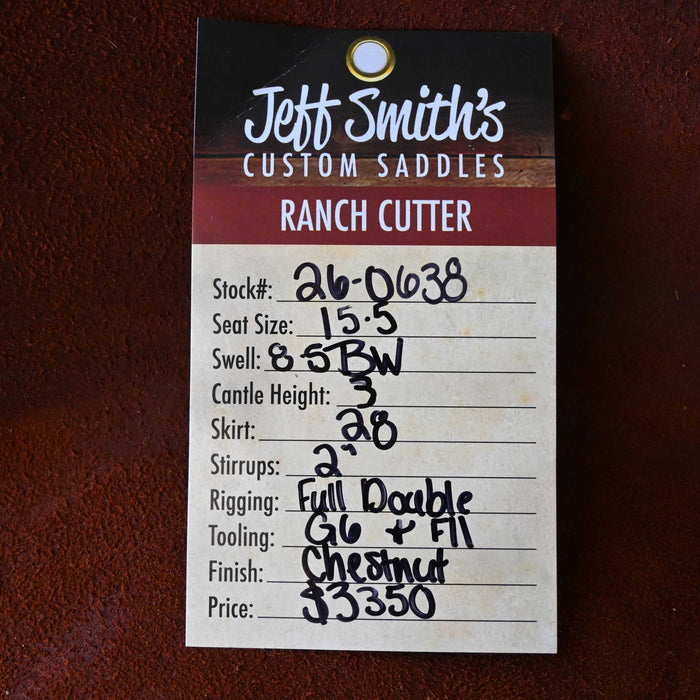 Jeff Smith's
CUSTOM SADDLES
RANCH CUTTER
Stock#: 26-0638
Seat Size: 15.5
Swell: 8.5BW
Cantle Height: 3
Skirt: 28
Stirrups: 2"
Rigging: Full Double
Tooling: G6 + F11
Finish: Chestnut
Price: $3350